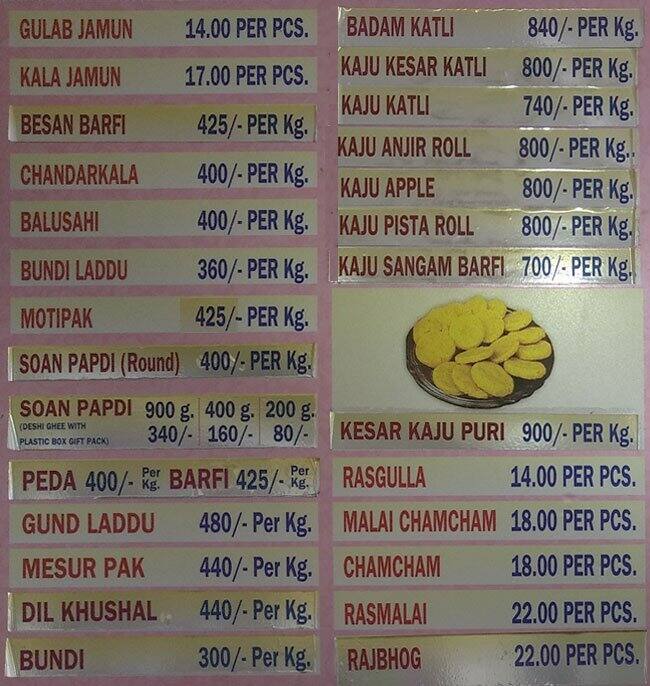 GULAB JAMUN 14.00 PER PCS.
KALA JAMUN 17.00 PER PCS.
BESAN BARFI 425/- PER Kg.
CHANDARKALA 400/- PER Kg.
BALUSAHI 400/- PER Kg.
BUNDI LADDU 360/- PER Kg.
MOTIPAK 425/- PER Kg.
SOAN PAPDI (Round) 400/- PER Kg.
SOAN PAPDI 900 g. 400 g. 200 g.
(DESHI GHEE WITH
PLASTIC BOX GIFT PACK) 340/- 160/- 80/-
PEDA 400/- Per Kg. BARFI 425/- Per Kg.
GUND LADDU 480/- Per Kg.
MESUR PAK 440/- Per Kg.
DIL KHUSHAL 440/- Per Kg.
BUNDI 300/- Per Kg.
BADAM KATLI 840/- PER Kg.
KAJU KESAR KATLI 800/- PER Kg.
KAJU KATLI 740/- PER Kg.
KAJU ANJIR ROLL 800/- PER Kg..
KAJU APPLE 800/- PER Kg.
KAJU PISTA ROLL 800/- PER Kg.
KAJU SANGAM BARFI 700/- PER Kg.
KESAR KAJU PURI 900/- PER Kg.
RASGULLA 14.00 PER PCS.
MALAI CHAMCHAM 18.00 PER PCS.
CHAMCHAM 18.00 PER PCS.
RASMALAI 22.00 PER PCS.
RAJBHOG 22.00 PER PCS.